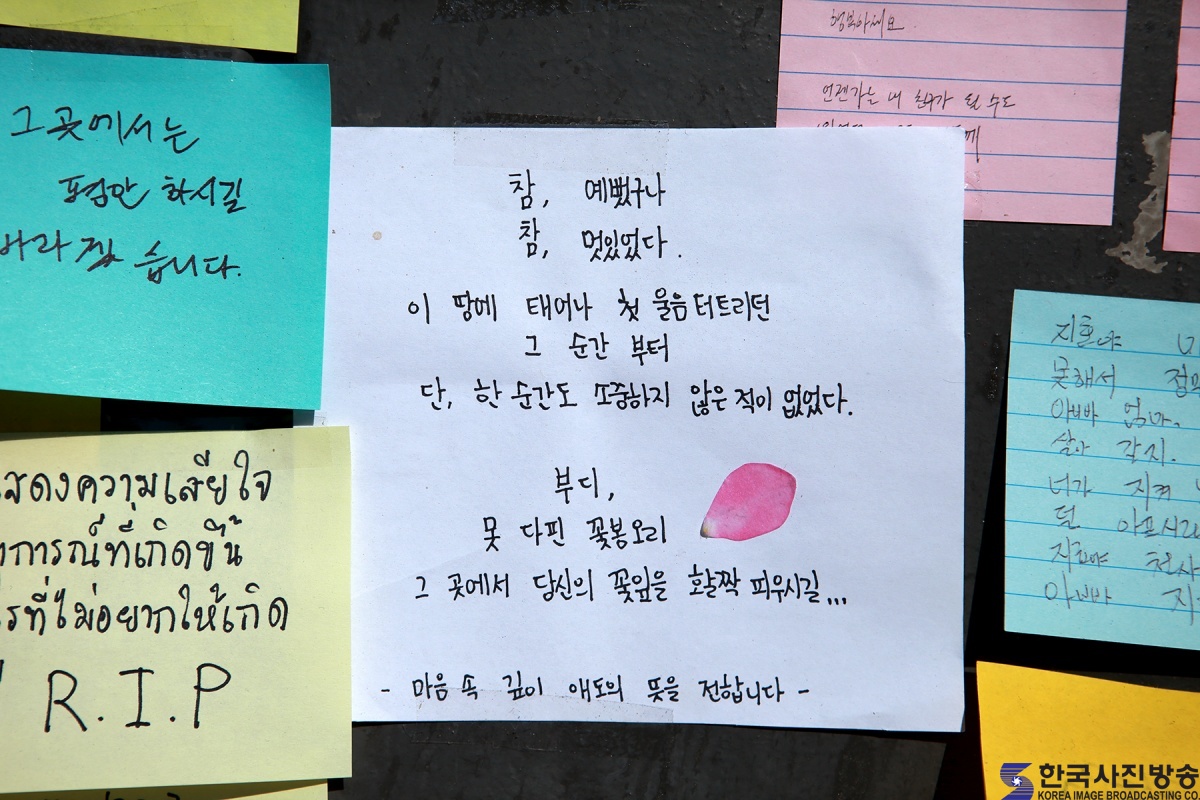 그 곳에서는
평안 하시길
바라 겠 습니다.
행복하세요
언젠가는 내 친구가 될 수도
참, 예뻤구나
참, 멋있었다.
이 땅에 태어나 첫 울음 터트리던
그 순간 부터
단, 한 순간도 소중하지 않은 적이 없었다.
부디,
못 다핀 꽃봉오리
그 곳에서 당신의 꽃잎을 활짝 피우시길...
- 마음 속 깊이 애도의 뜻을 전합니다 -
สดงความเสียใจ
การณ์ที่เกิดขึ้น
รที่ไม่อยากให้เกิด
R.I.P
지호야
못해서
아빠 엄마.
살아 갈지.
너가 지켜
지호야 천사
아빠 지
한국사진방송
KOREA IMAGE BROADCASTING CO